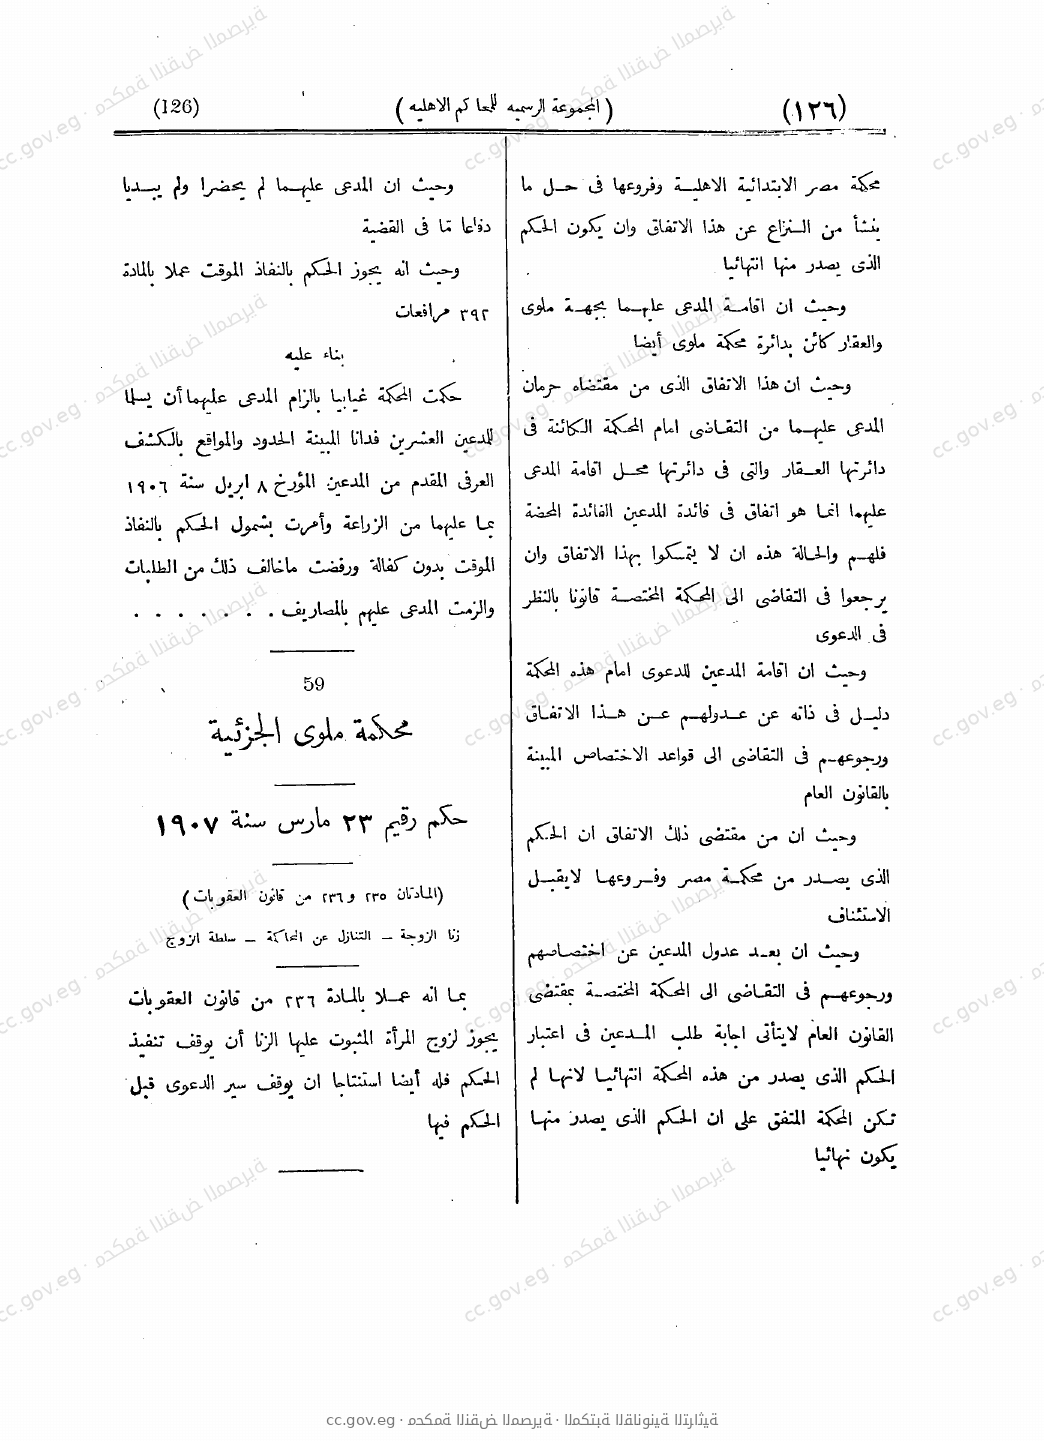 (١٢٦)
(المجموعة الرسميه للمحاكم الاهليه)
(126)
محكمة مصر الابتدائية الاهلية وفروعها فى حل ما
ينشأ من النزاع عن هذا الاتفاق وان يكون الحكم
الذى يصدر منها انتهائيا
وحيث ان اقامة المدعى عليهما بجهة ملوى
والعقار كائن بدائرة محكمة ملوى أيضا
وحيث ان هذا الاتفاق الذى من مقتضاه حرمان
المدعى عليهما من التقاضى امام المحكمة الكائنة فى
دائرتها العقار والتى فى دائرتها محل اقامة المدعى
عليهما انما هو اتفاق فى فائدة المدعين الفائدة المحضة
فلهم والحالة هذه ان لا يتمسكوا بهذا الاتفاق وان
يرجعوا فى التقاضى الى المحكمة المختصة قانونا بالنظر
فى الدعوى
وحيث ان اقامة المدعين للدعوى امام هذه المحكمة
دليل فى ذاته عن عدولهم عن هذا الاتفاق
ورجوعهم فى التقاضى الى قواعد الاختصاص المبينة
بالقانون العام
وحيث ان من مقتضى ذلك الاتفاق ان الحكم
الذى يصدر من محكمة مصر وفروعها لا يقبل
الاستئناف
وحيث ان بعد عدول المدعين عن اختصاصهم
ورجوعهم فى التقاضى الى المحكمة المختصة بمقتضى
القانون العام لا يتأتى اجابة طلب المدعين فى اعتبار
الحكم الذى يصدر من هذه المحكمة انتهائيا لانها لم
تكن المحكمة المتفق على ان الحكم الذى يصدر منها
يكون نهائيا
وحيث ان المدعى عليهما لم يحضرا ولم يبديا
دفاعا مّا فى القضية
وحيث انه يجوز الحكم بالنفاذ الموقت عملا بالمادة
٣٩٢ مرافعات
بناء عليه
حكمت المحكمة غيابيا بالزام المدعى عليهما أن يسلما
للمدعين العشرين فدانا المبينة الحدود والمواقع بالكشف
العرفى المقدم من المدعين المؤرخ ٨ ابريل سنة ١٩٠٦
بما عليهما من الزراعة وأمرت بشمول الحكم بالنفاذ
الموقت بدون كفالة ورفضت ماخالف ذلك من الطلبات
والزمت المدعى عليهم بالمصاريف . . . . . . .
59
محكمة ملوى الجزئية
حكم رقيم ٢٣ مارس سنة ١٩٠٧
(المادتان ٢٣٥ و ٢٣٦ من قانون العقوبات)
زنا الزوجة – التنازل عن المحاكمة – سلطة الزوج
بما انه عملا بالمادة ٢٣٦ من قانون العقوبات
يجوز لزوج المرأة المثبوت عليها الزنا أن يوقف تنفيذ
الحكم فله أيضا استنتاجا ان يوقف سير الدعوى قبل
الحكم فيها
cc.gov.eg · محكمة النقض المصرية · المكتبة القانونية التراثية